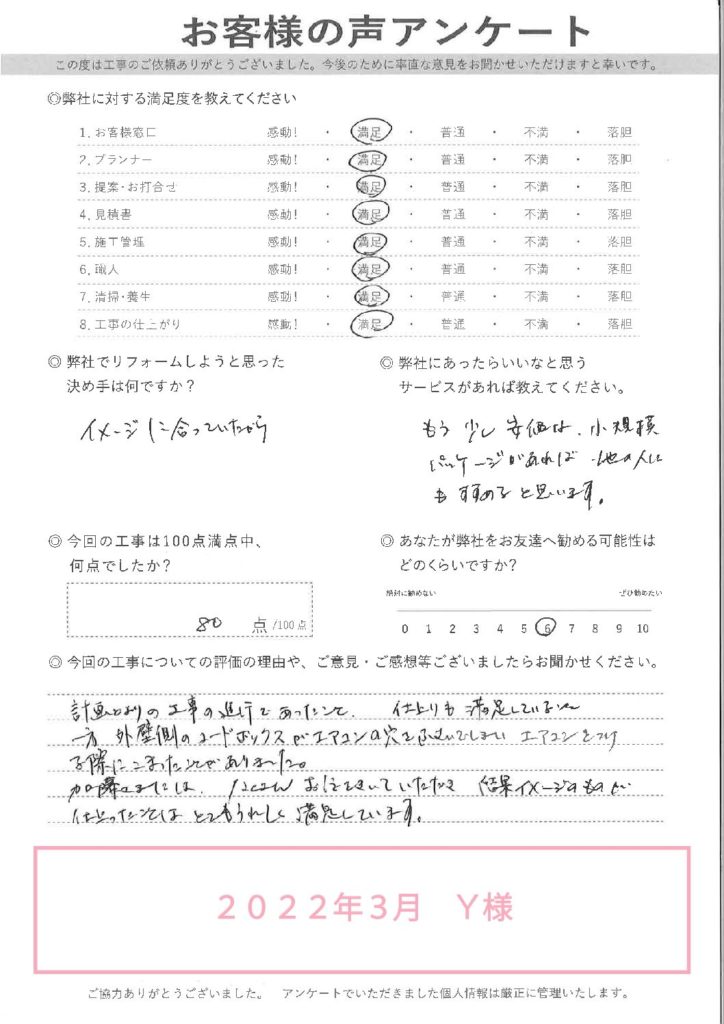 お客様の声アンケート
この度は工事のご依頼ありがとうございました。今後のために率直な意見をお聞かせいただけますと幸いです。
◎弊社に対する満足度を教えてください
1. お客様窓口 感動! ・ 満足 ・ 普通 ・ 不満 ・ 落胆
2. プランナー 感動! ・ 満足 ・ 普通 ・ 不満 ・ 落胆
3. 提案・お打合せ 感動! ・ 満足 ・ 普通 ・ 不満 ・ 落胆
4. 見積書 感動! ・ 満足 ・ 普通 ・ 不満 ・ 落胆
5. 施工管理 感動! ・ 満足 ・ 普通 ・ 不満 ・ 落胆
6. 職人 感動! ・ 満足 ・ 普通 ・ 不満 ・ 落胆
7. 清掃・養生 感動! ・ 満足 ・ 普通 ・ 不満 ・ 落胆
8. 工事の仕上がり 感動! ・ 満足 ・ 普通 ・ 不満 ・ 落胆
◎ 弊社でリフォームしようと思った
決め手は何ですか?
イメージに合っていたから
◎ 弊社にあったらいいなと思う
サービスがあれば教えてください。
もう少し安価な、小規模
パッケージがあれば 他の人に
もすすめると思います。
◎ 今回の工事は100点満点中、
何点でしたか?
80 点 /100点
◎ あなたが弊社をお友達へ勧める可能性は
どのくらいですか?
絶対に勧めない ぜひ勧めたい
0 1 2 3 4 5 6 7 8 9 10
◎ 今回の工事についての評価の理由や、ご意見・ご感想等ございましたらお聞かせください。
計画どおりの工事の進行であったこと、 仕上りも満足している
一方 外壁側のコードボックスがエアコンの穴を エアコンをつけ
る際にこまったことがありました。
結果イメージのものが
仕上ったことはとてもうれしく満足しています。
2022年3月 Y様
ご協力ありがとうございました。 アンケートでいただきました個人情報は厳正に管理いたします。